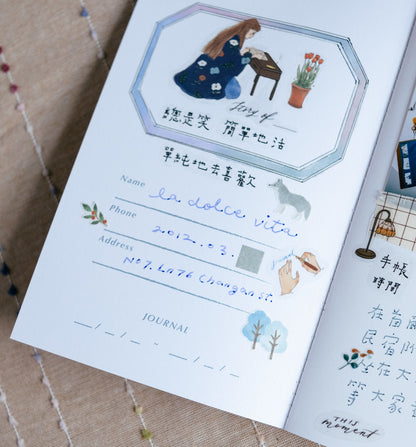 Story of
總是笑 簡單地活
單純地去喜歡
Name
la dolce vita
Phone
2012.03.
Address
No7. Ln76 Changan st.
JOURNAL
手帳
時間
在首
民宿附
坐在大
等大家
THIS
moment